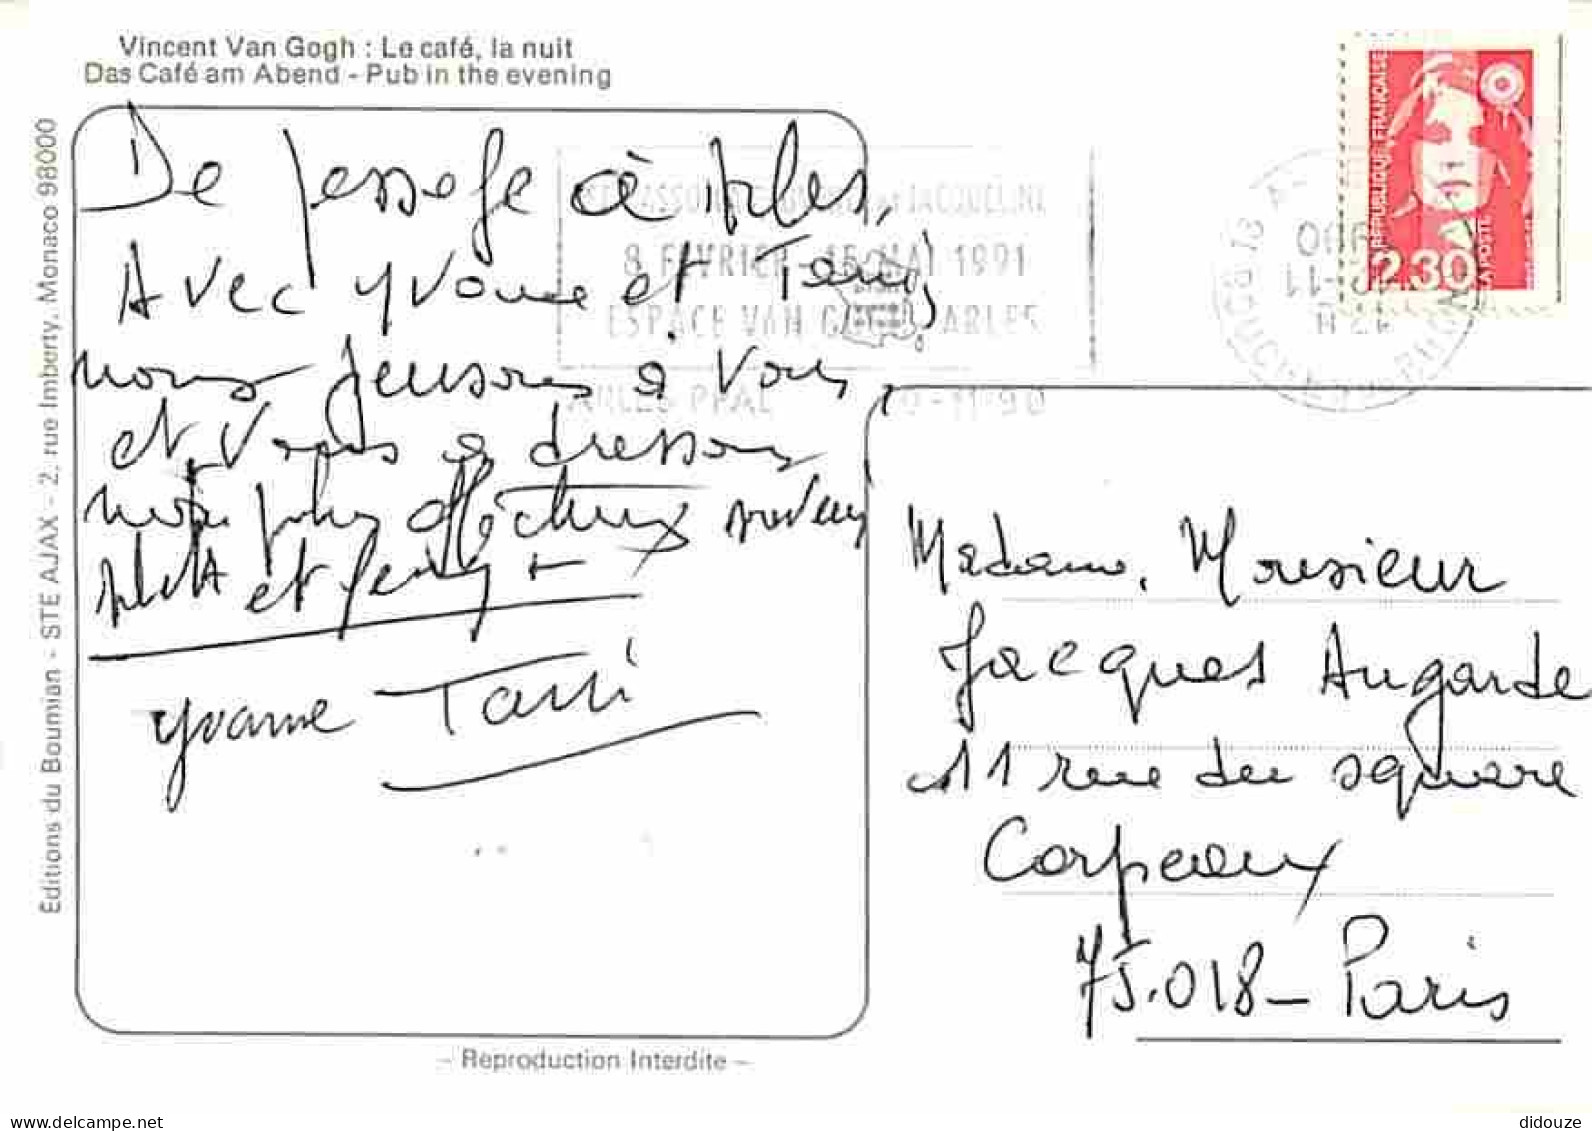 Vincent Van Gogh : Le café, la nuit
Das Café am Abend - Pub in the evening
Editions du Boumian - STE AJAX - 2, rue Imberty, Monaco 98000
De passage à Arles,
Avec Yvonne et
nous pensons à vous
et vous adressons
plus affectueux
et
Yvonne
8 FEVRIER - 15 MAI 1991
ESPACE VAN GOGH ARLES
ARLES PPAL
REPUBLIQUE FRANÇAISE
2,30
LA POSTE
Madame, Monsieur
Jacques Augarde
11 rue du square
Carpeaux
75.018 - Paris
- Reproduction Interdite -
delcampe.net
didouze